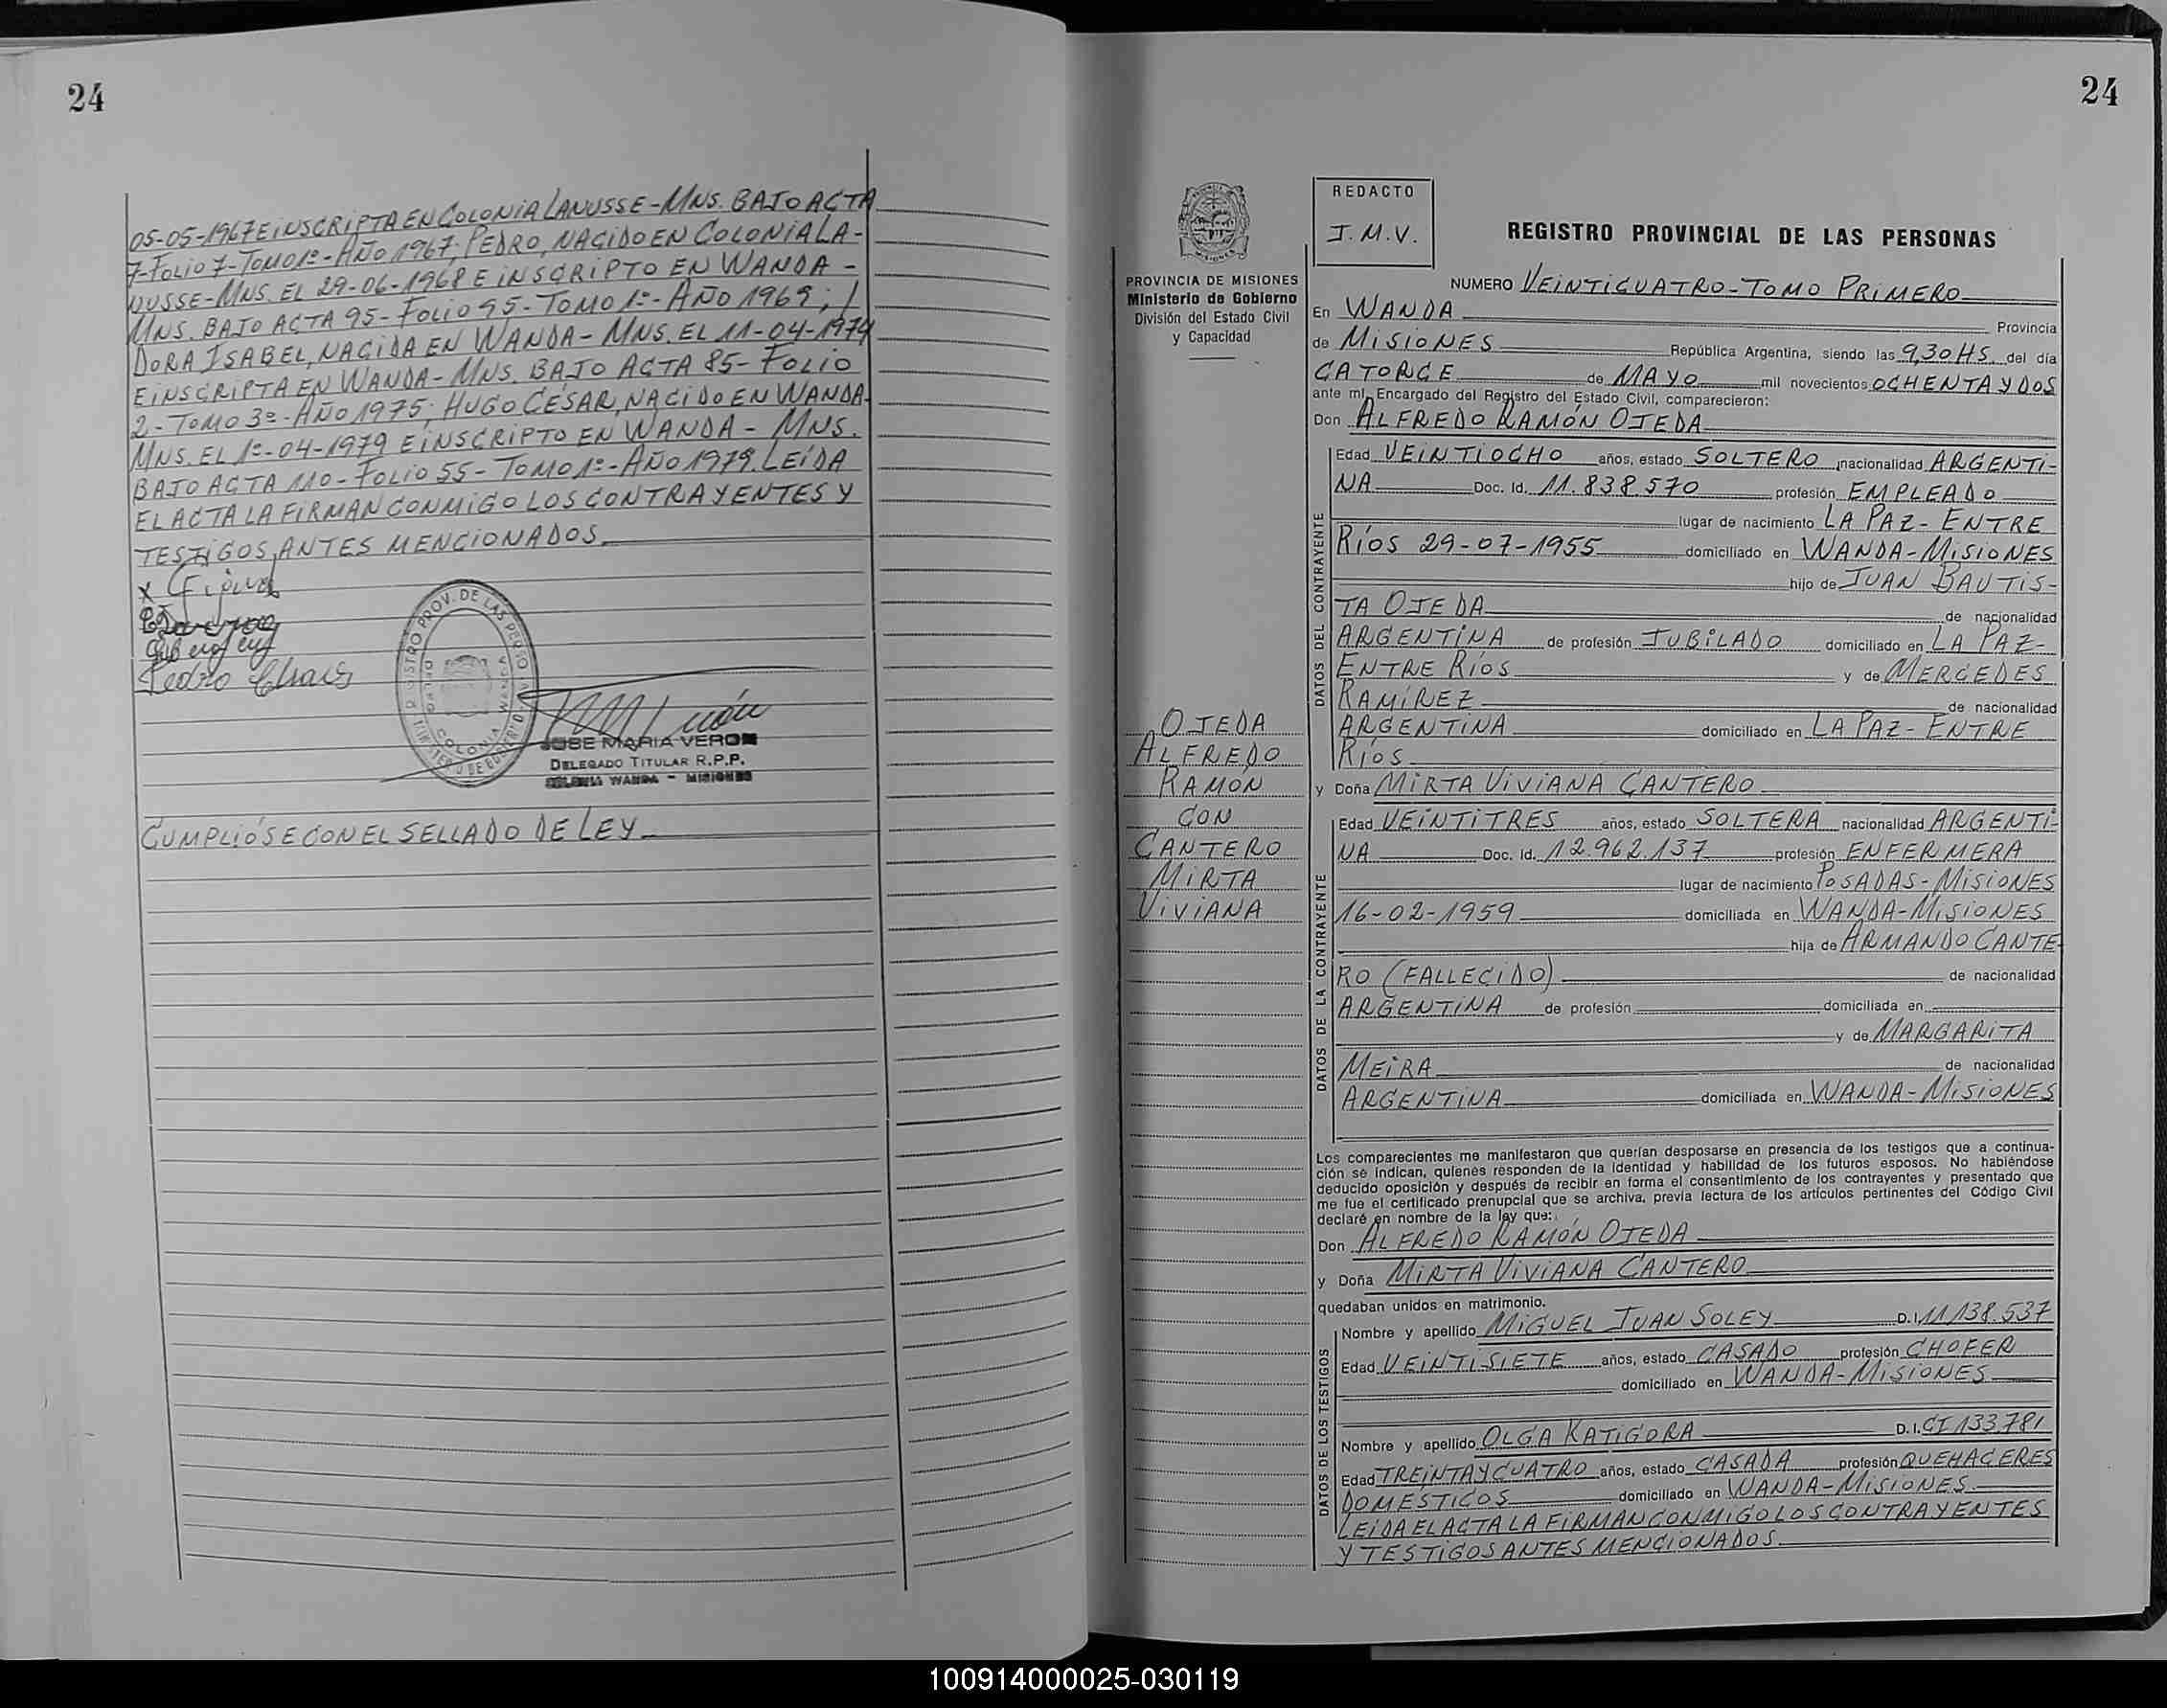 24
05-05-1967 E INSCRIPTA EN COLONIA LANUSSE-MNS. BAJO ACTA
7-FOLIO 7-TOMO 1º-AÑO 1967; PEDRO, NACIDO EN COLONIA LA-
NUSSE-MNS. EL 29-06-1968 E INSCRIPTO EN WANDA-
MNS. BAJO ACTA 95-FOLIO 95-TOMO 1º-AÑO 1969; /
DORA ISABEL, NACIDA EN WANDA-MNS. EL 11-04-1974
E INSCRIPTA EN WANDA-MNS. BAJO ACTA 85-FOLIO
2-TOMO 3º-AÑO 1975; HUGO CÉSAR, NACIDO EN WANDA-
MNS. EL 1º-04-1979 E INSCRIPTO EN WANDA-MNS.
BAJO ACTA 110-FOLIO 55-TOMO 1º-AÑO 1979. LEÍDA
EL ACTA LA FIRMAN CONMIGO LOS CONTRAYENTES Y
TESTIGOS ANTES MENCIONADOS.
Pedro
JOSE MARIA VERON
DELEGADO TITULAR R.P.P.
COLONIA WANDA - MISIONES
CUMPLIÓSE CON EL SELLADO DE LEY.
24
PROVINCIA DE MISIONES
Ministerio de Gobierno
División del Estado Civil
y Capacidad
OJEDA
ALFREDO
RAMÓN
CON
CANTERO
MIRTA
VIVIANA
REDACTO
J.M.V.
REGISTRO PROVINCIAL DE LAS PERSONAS
NUMERO VEINTICUATRO-TOMO PRIMERO
En WANDA Provincia
de MISIONES República Argentina, siendo las 9,30 HS. del día
CATORCE de MAYO mil novecientos OCHENTA Y DOS
ante mí, Encargado del Registro del Estado Civil, comparecieron:
Don ALFREDO RAMÓN OJEDA
DATOS DEL CONTRAYENTE
Edad VEINTIOCHO años, estado SOLTERO nacionalidad ARGENTI-
NA Doc. Id. 11.838.570 profesión EMPLEADO
lugar de nacimiento LA PAZ-ENTRE
RÍOS 29-07-1955 domiciliado en WANDA-MISIONES
hijo de JUAN BAUTIS-
TA OJEDA de nacionalidad
ARGENTINA de profesión JUBILADO domiciliado en LA PAZ-
ENTRE RÍOS y de MERCEDES
RAMÍREZ de nacionalidad
ARGENTINA domiciliado en LA PAZ-ENTRE
RÍOS
y Doña MIRTA VIVIANA CANTERO
DATOS DE LA CONTRAYENTE
Edad VEINTITRES años, estado SOLTERA nacionalidad ARGENTI-
NA Doc. Id. 12.962.137 profesión ENFERMERA
lugar de nacimiento POSADAS-MISIONES
16-02-1959 domiciliada en WANDA-MISIONES
hija de ARMANDO CANTE-
RO (FALLECIDO) de nacionalidad
ARGENTINA de profesión domiciliada en
y de MARGARITA
MEIRA de nacionalidad
ARGENTINA domiciliada en WANDA-MISIONES
Los comparecientes me manifestaron que querían desposarse en presencia de los testigos que a continua-
ción se indican, quienes responden de la identidad y habilidad de los futuros esposos. No habiéndose
deducido oposición y después de recibir en forma el consentimiento de los contrayentes y presentado que
me fue el certificado prenupcial que se archiva, previa lectura de los artículos pertinentes del Código Civil
declaré en nombre de la ley que:
Don ALFREDO RAMÓN OJEDA
y Doña MIRTA VIVIANA CANTERO
quedaban unidos en matrimonio.
DATOS DE LOS TESTIGOS
Nombre y apellido MIGUEL JUAN SOLEY D.I. 11.138.537
Edad VEINTISIETE años, estado CASADO profesión CHOFER
domiciliado en WANDA-MISIONES
Nombre y apellido OLGA KATIGORA D.I. CI 133.781
Edad TREINTA Y CUATRO años, estado CASADA profesión QUEHACERES
DOMÉSTICOS domiciliado en WANDA-MISIONES
LEÍDA EL ACTA LA FIRMAN CONMIGO LOS CONTRAYENTES
Y TESTIGOS ANTES MENCIONADOS.
100914000025-030119